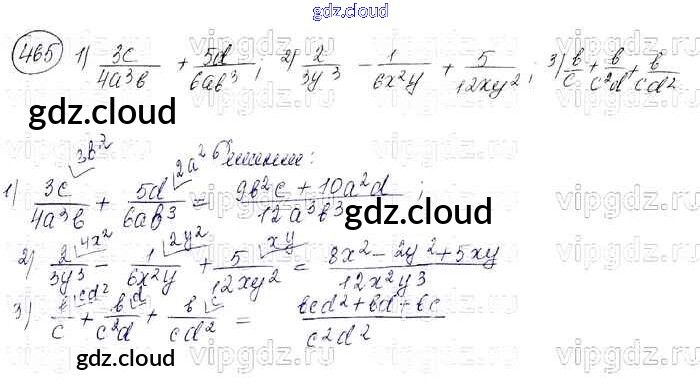 gdz.cloud
465 1) 3c/4a³b + 5d/6ab³; 2) 2/3y³ - 1/6x²y + 5/12xy²; 3) b/c + b/c²d + b/cd²
gdz.cloud
Решение:
1) 3c/4a³b (3b² + 5d/6ab³ (2a² = 9b²c + 10a²d/12a³b³;
gdz.cloud
2) 2/3y³ (4x² - 1/6x²y (2y² + 5/12xy² (xy = 8x² - 2y² + 5xy/12x²y³
3) b/c (cd² + b/c²d (d + b/cd² (c = bcd² + bd + bc/c²d²
gdz.cloud